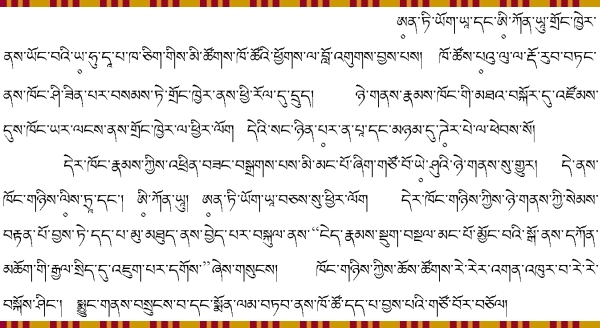 ཨན༹་ཏི་ཡོག་ཡཱ་དང་ཨི༹་ཀོན་ཡཱུ་གྲོང་ཁྱེར་
ནས་ཡོང་བའི་ཡ༹་ཧུ་དཱ་པ་ཁ་ཅིག་གིས་མི་ཚོགས་ཁོ་ཚོའི་ཕྱོགས་ལ་བློ་འགུགས་བྱས་པས། ཁོ་ཚོས་པའུ༹་ལུ་ལ་རྡོ་རུབ་བཏང་
ནས་ཁོང་ཤི་ཟིན་པར་བསམས་ཏེ་གྲོང་ཁྱེར་ནས་ཕྱི་རོལ་དུ་དྲུད། ཉེ་གནས་རྣམས་ཁོང་གི་མཐའ་བསྐོར་དུ་འཛོམས་
དུས་ཁོང་ཡར་ལངས་ནས་གྲོང་ཁྱེར་ལ་ཕྱིར་ལོག དེའི་སང་ཉིན་པར༹་ན་པཱ་དང་མཉམ་དུ་ཌེར༹་པེ་ལ་ཕེབས་སོ།
དེར་ཁོང་རྣམས་ཀྱིས་འཕྲིན་བཟང་བསྒྲགས་པས་མི་མང་པོ་ཞིག་གཙོ་བོ་ཡེ༹་ཤུའི་ཉེ་གནས་སུ་གྱུར། དེ་ནས་
ཁོང་གཉིས་ལིས༹་ཏྲཱ་དང་། ཨི༹་ཀོན་ཡཱུ། ཨན༹་ཏི་ཡོག་ཡཱ་བཅས་སུ་ཕྱིར་ལོག དེར་ཁོང་གཉིས་ཀྱིས་ཉེ་གནས་ཀྱི་སེམས་
བརྟན་པོ་བྱས་ཏེ་དད་པ་མུ་མཐུད་ནས་བྱེད་པར་བསྐུལ་ནས་“ངེད་རྣམས་སྡུག་བསྔལ་མང་པོ་མྱོང་བའི་སྒོ་ནས་དཀོན་
མཆོག་གི་རྒྱལ་སྲིད་དུ་འཇུག་པར་དགོས་”ཞེས་གསུངས། ཁོང་གཉིས་ཀྱིས་ཆོས་ཚོགས་རེ་རེར་འགན་འཁུར་བ་རེ་རེ་
བསྐོས་ཤིང་། སྨྱུང་གནས་བསྲུངས་བ་དང་སྨོན་ལམ་བཏབ་ནས་ཁོ་ཚོ་དད་པ་བྱས་པའི་གཙོ་བོར་བཅོལ།